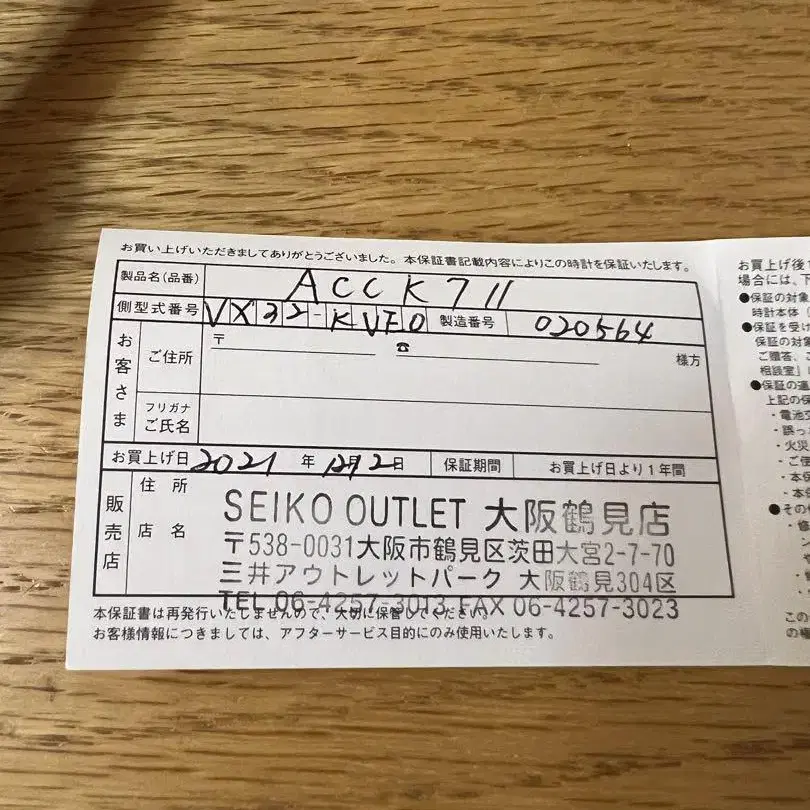 お買い上げいただきましてありがとうございました。本保証書記載内容によりこの時計を保証いたします。
製品名(品番) ACCK711
側型式番号 VX32-KVF0 製造番号 020564
お客さま
ご住所 〒 ☎ 様方
フリガナ
ご氏名
お買上げ日 2021 年 12月 2日 保証期間 お買上げ日より1年間
販売店
住所
店名
SEIKO OUTLET 大阪鶴見店
〒538-0031大阪市鶴見区茨田大宮2-7-70
三井アウトレットパーク 大阪鶴見304区
TEL 06-4257-3013 FAX 06-4257-3023
本保証書は再発行いたしませんので、大切に保管してください。
お客様情報につきましては、アフターサービス目的にのみ使用いたします。
お買上げ後1
場合には、下
●保証の対象
時計本体(
●保証を受け
保証の対象
ご贈答、こ
相談室」
●保証の適
上記の保
・電池交
・誤っ
・火災
・ご使
・本保
・本
●その
この
の権